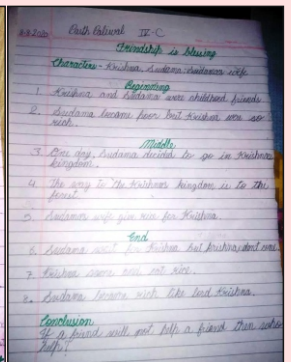 Parth Paliwal IV-C
Friendship is blessing
Characters - Krishna, Sudama, Sudama's wife
Beginning
1. Krishna and Sudama were childhood friends
2. Sudama became poor but Krishna was so
rich.
Middle
3. One day, Sudama decided to go in Krishna
kingdom.
4. The way to the Krishna kingdom is to the
forest.
5. Sudama wife give rice for Krishna.
End
6. Sudama wait for Krishna but Krishna dont come
7. Krishna came and eat rice.
8. Sudama became rich like lord Krishna.
Conclusion
If a friend will not help a friend then who
help?